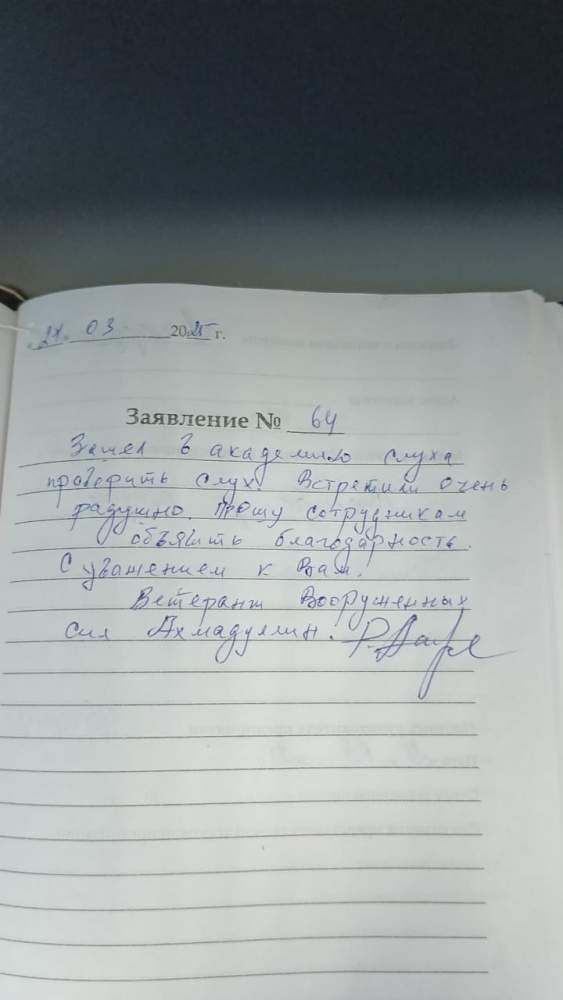 "24" 03 2025 г.
Заявление № 64
Зашел в академию слуха
проверить слух. Встретили очень
радушно. Прошу сотрудникам
объявить благодарность.
С уважением к Вам.
Ветеран Вооруженных
сил Ахмадуллин.